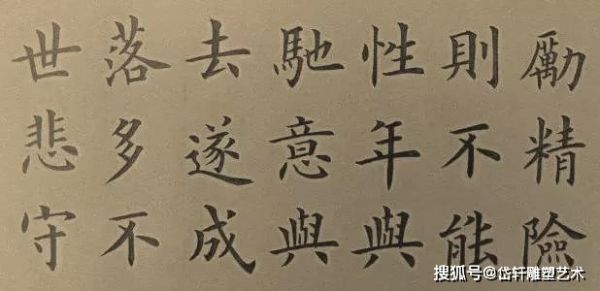 勵精險
則不能
性年與
馳意與
去遂成
落多不
世悲守
搜狐号@岱轩雕塑艺术